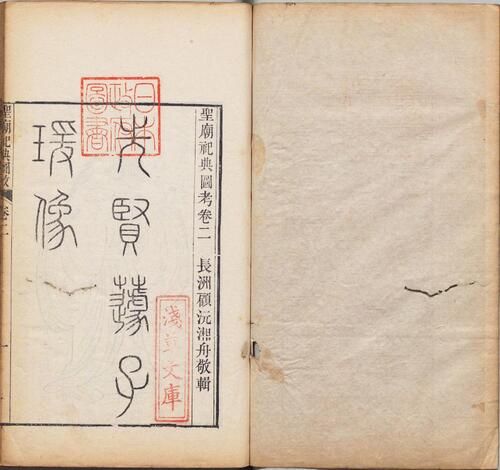 聖廟祀典圖考卷二 長洲顧沅湘舟敬輯
先賢蘧子
瑗像
日本
政府
圖書
淺草文庫
聖廟祀典圖攷 卷二